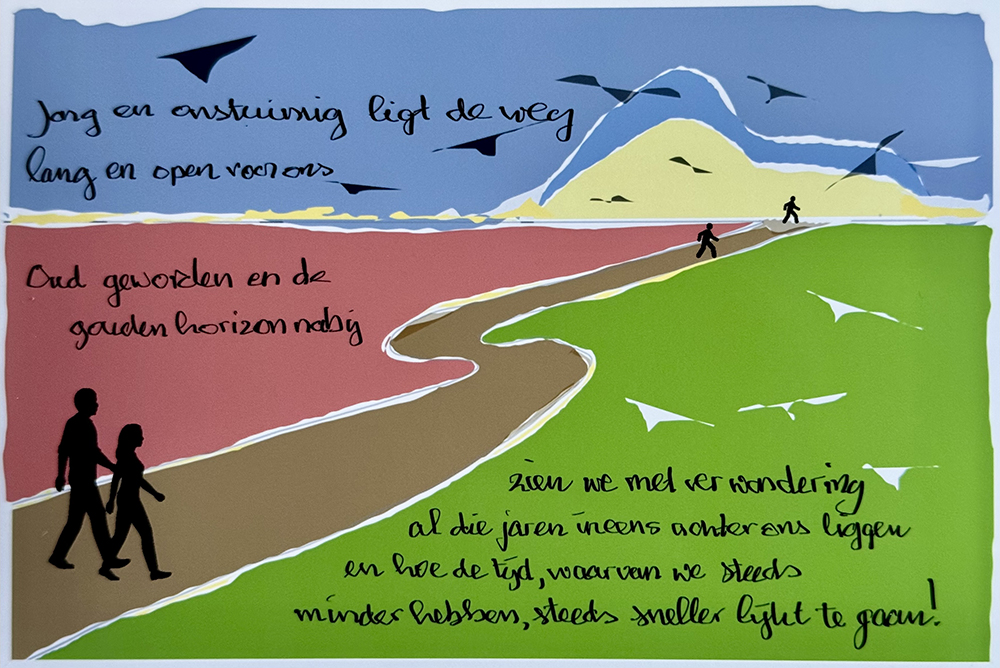 Jong en onstuimig ligt de weg
lang en open voor ons
Oud geworden en de
gouden horizon nabij
zien we met verwondering
al die jaren ineens achter ons liggen
en hoe de tijd, waarvan we steeds
minder hebben, steeds sneller lijkt te gaan!